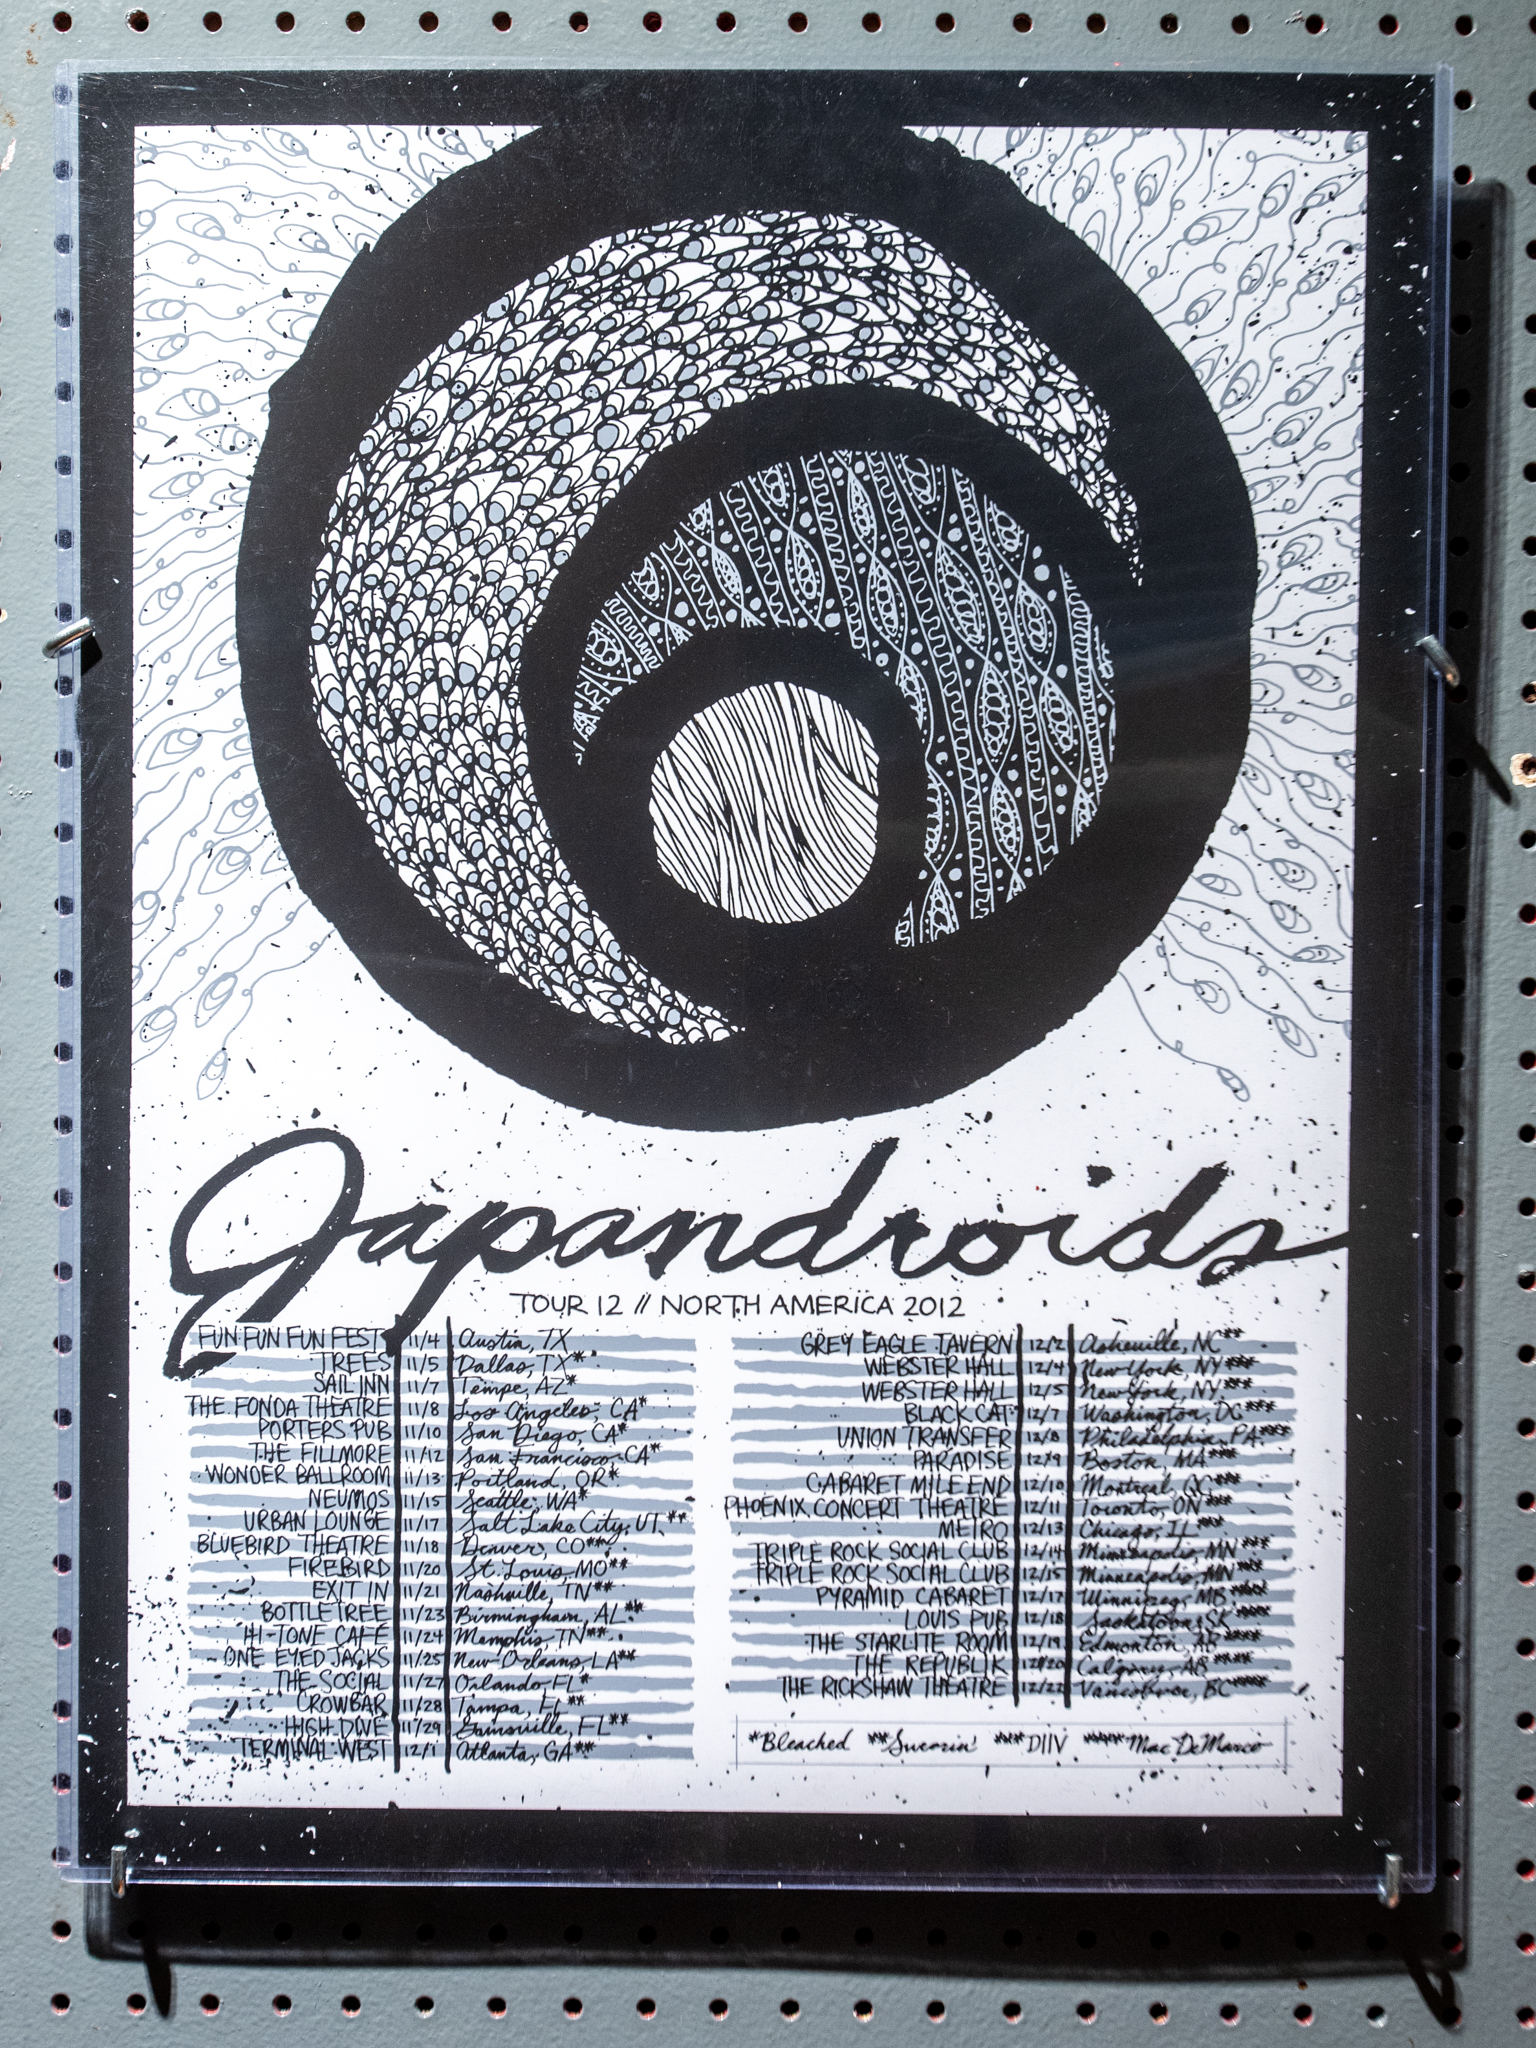 Japandroids
TOUR 12 // NORTH AMERICA 2012
FUN FUN FUN FEST 11/4 Austin, TX
TREES 11/5 Dallas, TX*
SAIL INN 11/7 Tempe, AZ*
THE FONDA THEATRE 11/8 Los Angeles, CA*
PORTERS PUB 11/10 San Diego, CA*
THE FILLMORE 11/12 San Francisco, CA*
WONDER BALLROOM 11/13 Portland, OR*
NEUMOS 11/15 Seattle, WA*
URBAN LOUNGE 11/17 Salt Lake City, UT**
BLUEBIRD THEATRE 11/18 Denver, CO**
FIREBIRD 11/20 St. Louis, MO**
EXIT IN 11/21 Nashville, TN**
BOTTLETREE 11/23 Birmingham, AL**
HI-TONE CAFE 11/24 Memphis, TN**
ONE EYED JACKS 11/25 New Orleans, LA**
THE SOCIAL 11/27 Orlando, FL*
CROWBAR 11/28 Tampa, FL**
HIGH DIVE 11/29 Gainsville, FL**
TERMINAL WEST 12/1 Atlanta, GA**
GREY EAGLE TAVERN 12/2 Asheville, NC**
WEBSTER HALL 12/4 New York, NY***
WEBSTER HALL 12/5 New York, NY***
BLACK CAT 12/7 Washington, DC***
UNION TRANSFER 12/8 Philadelphia, PA***
PARADISE 12/9 Boston, MA***
CABARET MILE END 12/10 Montreal, QC***
PHOENIX CONCERT THEATRE 12/11 Toronto, ON***
METRO 12/13 Chicago, IL***
TRIPLE ROCK SOCIAL CLUB 12/14 Minneapolis, MN***
TRIPLE ROCK SOCIAL CLUB 12/15 Minneapolis, MN***
PYRAMID CABARET 12/17 Winnipeg, MB****
LOUIS PUB 12/18 Saskatoon, SK****
THE STARLITE ROOM 12/19 Edmonton, AB****
THE REPUBLIK 12/20 Calgary, AB****
THE RICKSHAW THEATRE 12/22 Vancouver, BC****
*Bleached **Swearin' ***DIIV ****Mac DeMarco